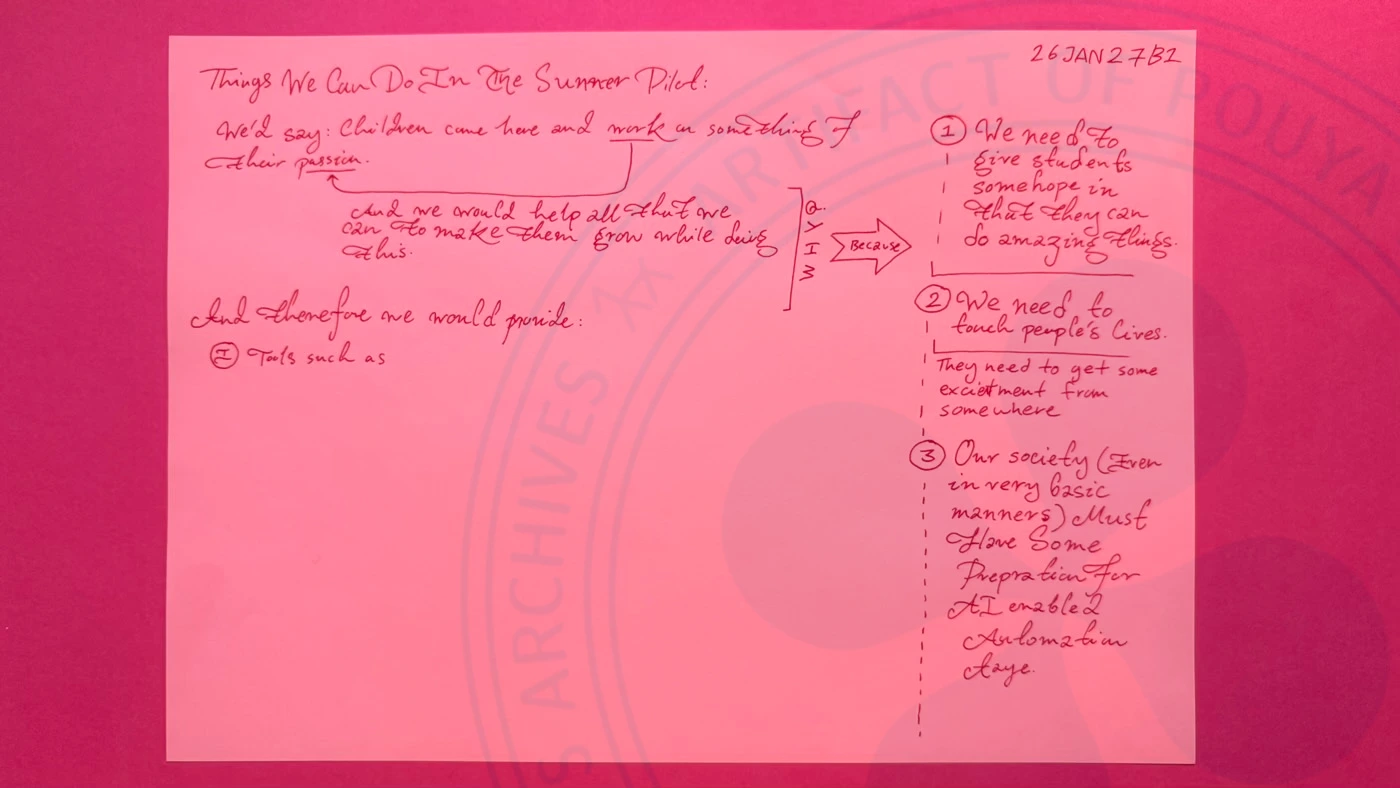 26JAN27B1
Things We Can Do In The Summer Pilot:
We'd say: Children come here and work on something of
their passion.
And we would help all that we
can to make them grow while doing
this.
WHY?
Because
And therefore we would provide:
I Tools such as
1 We need to
give students
some hope in
that they can
do amazing things.
2 We need to
touch people's lives.
They need to get some
excietment from
somewhere
3 Our society (Even
in very basic
manners) Must
Have Some
Prepration For
AI enabled
Automation
Aaye.
ARCHIVES
ARTIFACT OF POUYA